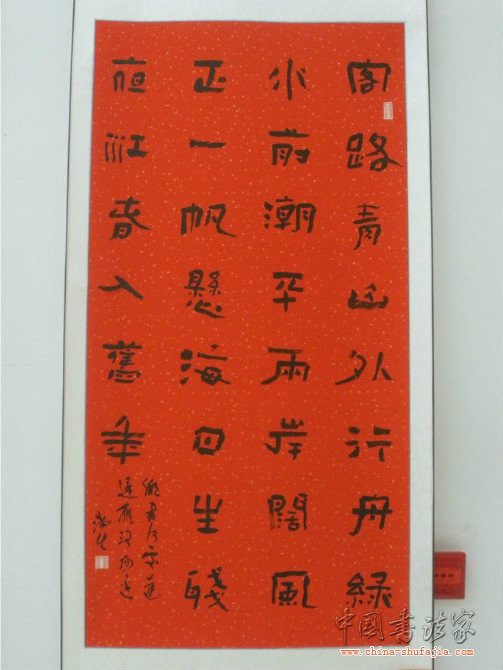 客路青山外行舟綠
水前潮平兩岸闊風
正一帆懸海日生殘
夜江春入舊年
鄉書何處達
歸雁洛陽邊
中國书法家
www.china-shufajia.com